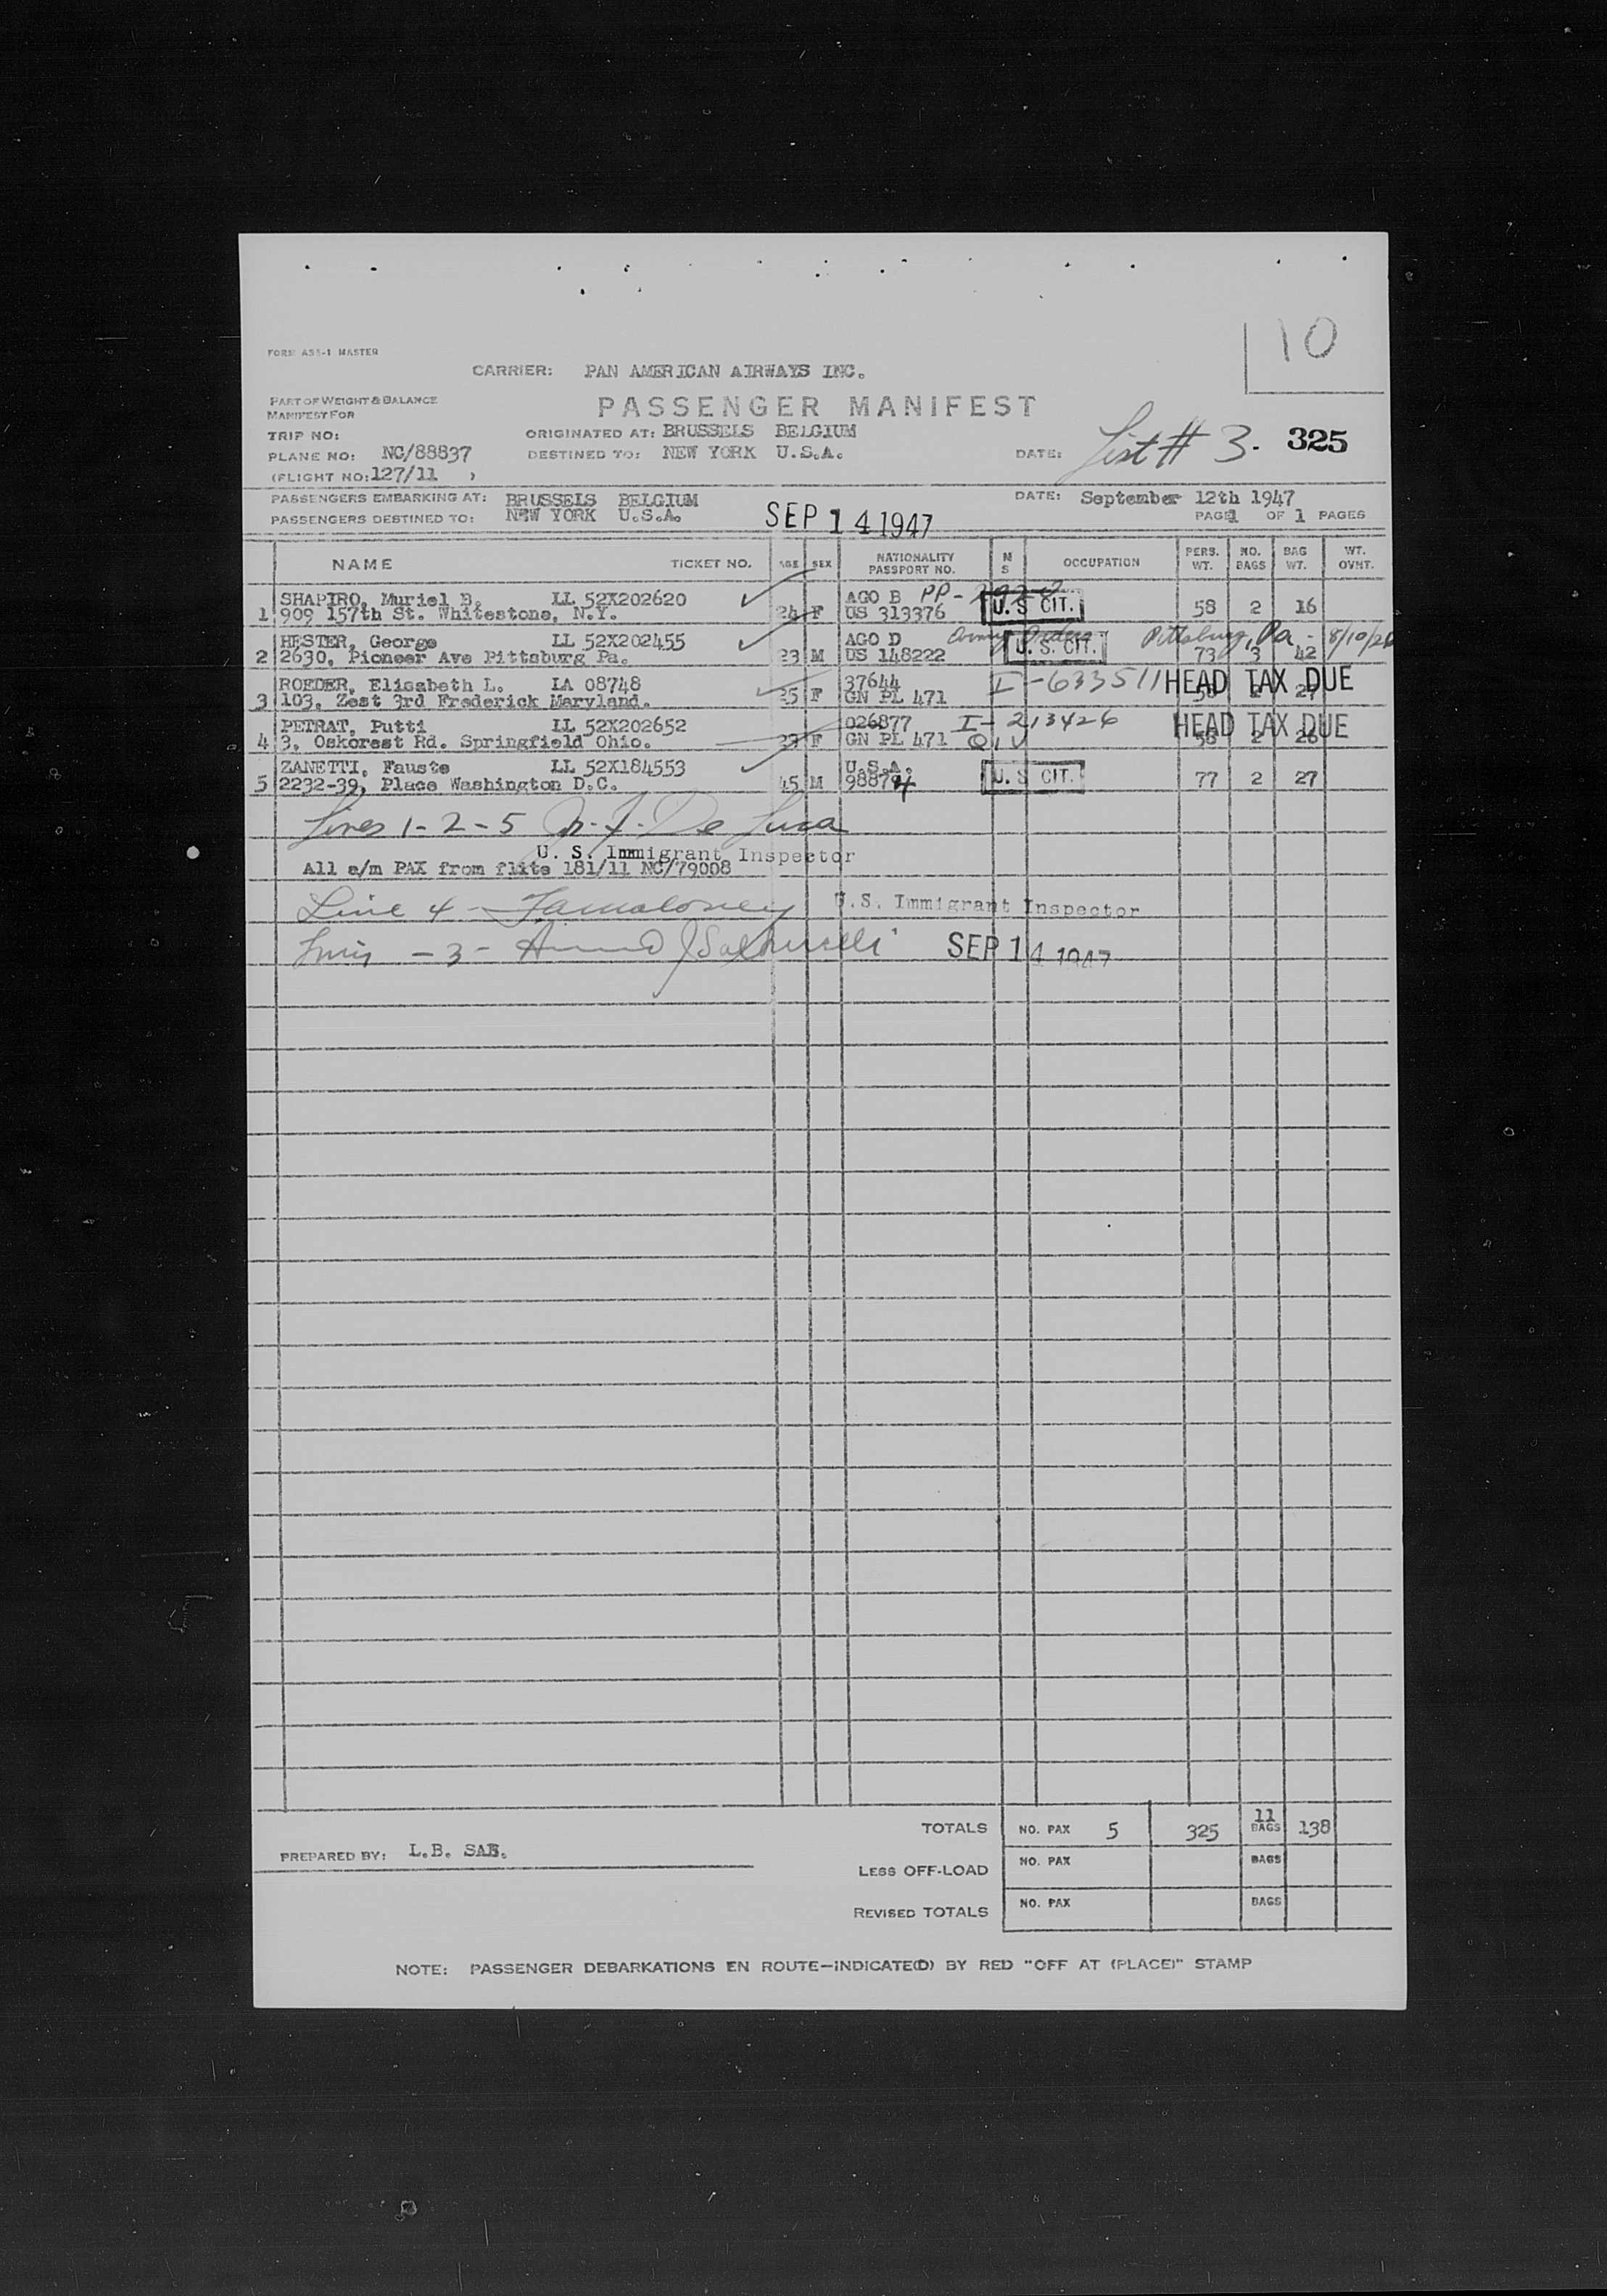 10
FORM AS3-1 MASTER
CARRIER: PAN AMERICAN AIRWAYS INC.
PART OF WEIGHT & BALANCE
MANIFEST FOR
PASSENGER MANIFEST
TRIP NO:
ORIGINATED AT: BRUSSELS BELGIUM
List # 3. 325
PLANE NO: NC/88837
DESTINED TO: NEW YORK U.S.A.
DATE:
(FLIGHT NO: 127/11 )
PASSENGERS EMBARKING AT: BRUSSELS BELGIUM
DATE: September 12th 1947
PASSENGERS DESTINED TO: NEW YORK U.S.A.
SEP 14 1947
PAGE 1 OF 1 PAGES
NAME TICKET NO. AGE SEX NATIONALITY PASSPORT NO. M S OCCUPATION PERS. WT. NO. BAGS BAG WT. WT. OVHT.
SHAPIRO, Muriel B. LL 52X202620 AGO B PP-
1 909 157th St. Whitestone, N.Y. 24 F US 313376 U.S CIT. 58 2 16
HESTER, George LL 52X202455 AGO D Army Orders Pittsburg, Pa -
2 2630, Pioneer Ave Pittsburg Pa. 23 M US 148222 U.S.CIT. 73 3 42
ROEDER, Elisabeth L. LA 08748 37644 I-633511 HEAD TAX DUE
3 103, Zest 3rd Frederick Maryland. 25 F GN PL 471 2 27
PETRAT, Putti LL 52X202652 026877 I-213426 HEAD TAX DUE
4 3, Oskorest Rd. Springfield Ohio. 23 F GN PL 471 QIV 2 26
ZANETTI, Fauste LL 52X184553 U.S.A.
5 2232-39, Place Washington D.C. 45 M 98874 U.S CIT. 77 2 27
Lines 1-2-5 De Luca
U. S. Immigrant Inspector
All a/m PAX from flite 181/11 NC/79008
Line 4 - U.S. Immigrant Inspector
- 3 - SEP 14 1947
TOTALS NO. PAX 5 325 11 BAGS 138
PREPARED BY: L.B. SAB.
LESS OFF-LOAD NO. PAX BAGS
REVISED TOTALS NO. PAX BAGS
NOTE: PASSENGER DEBARKATIONS EN ROUTE—INDICATE(D) BY RED "OFF AT (PLACE)" STAMP